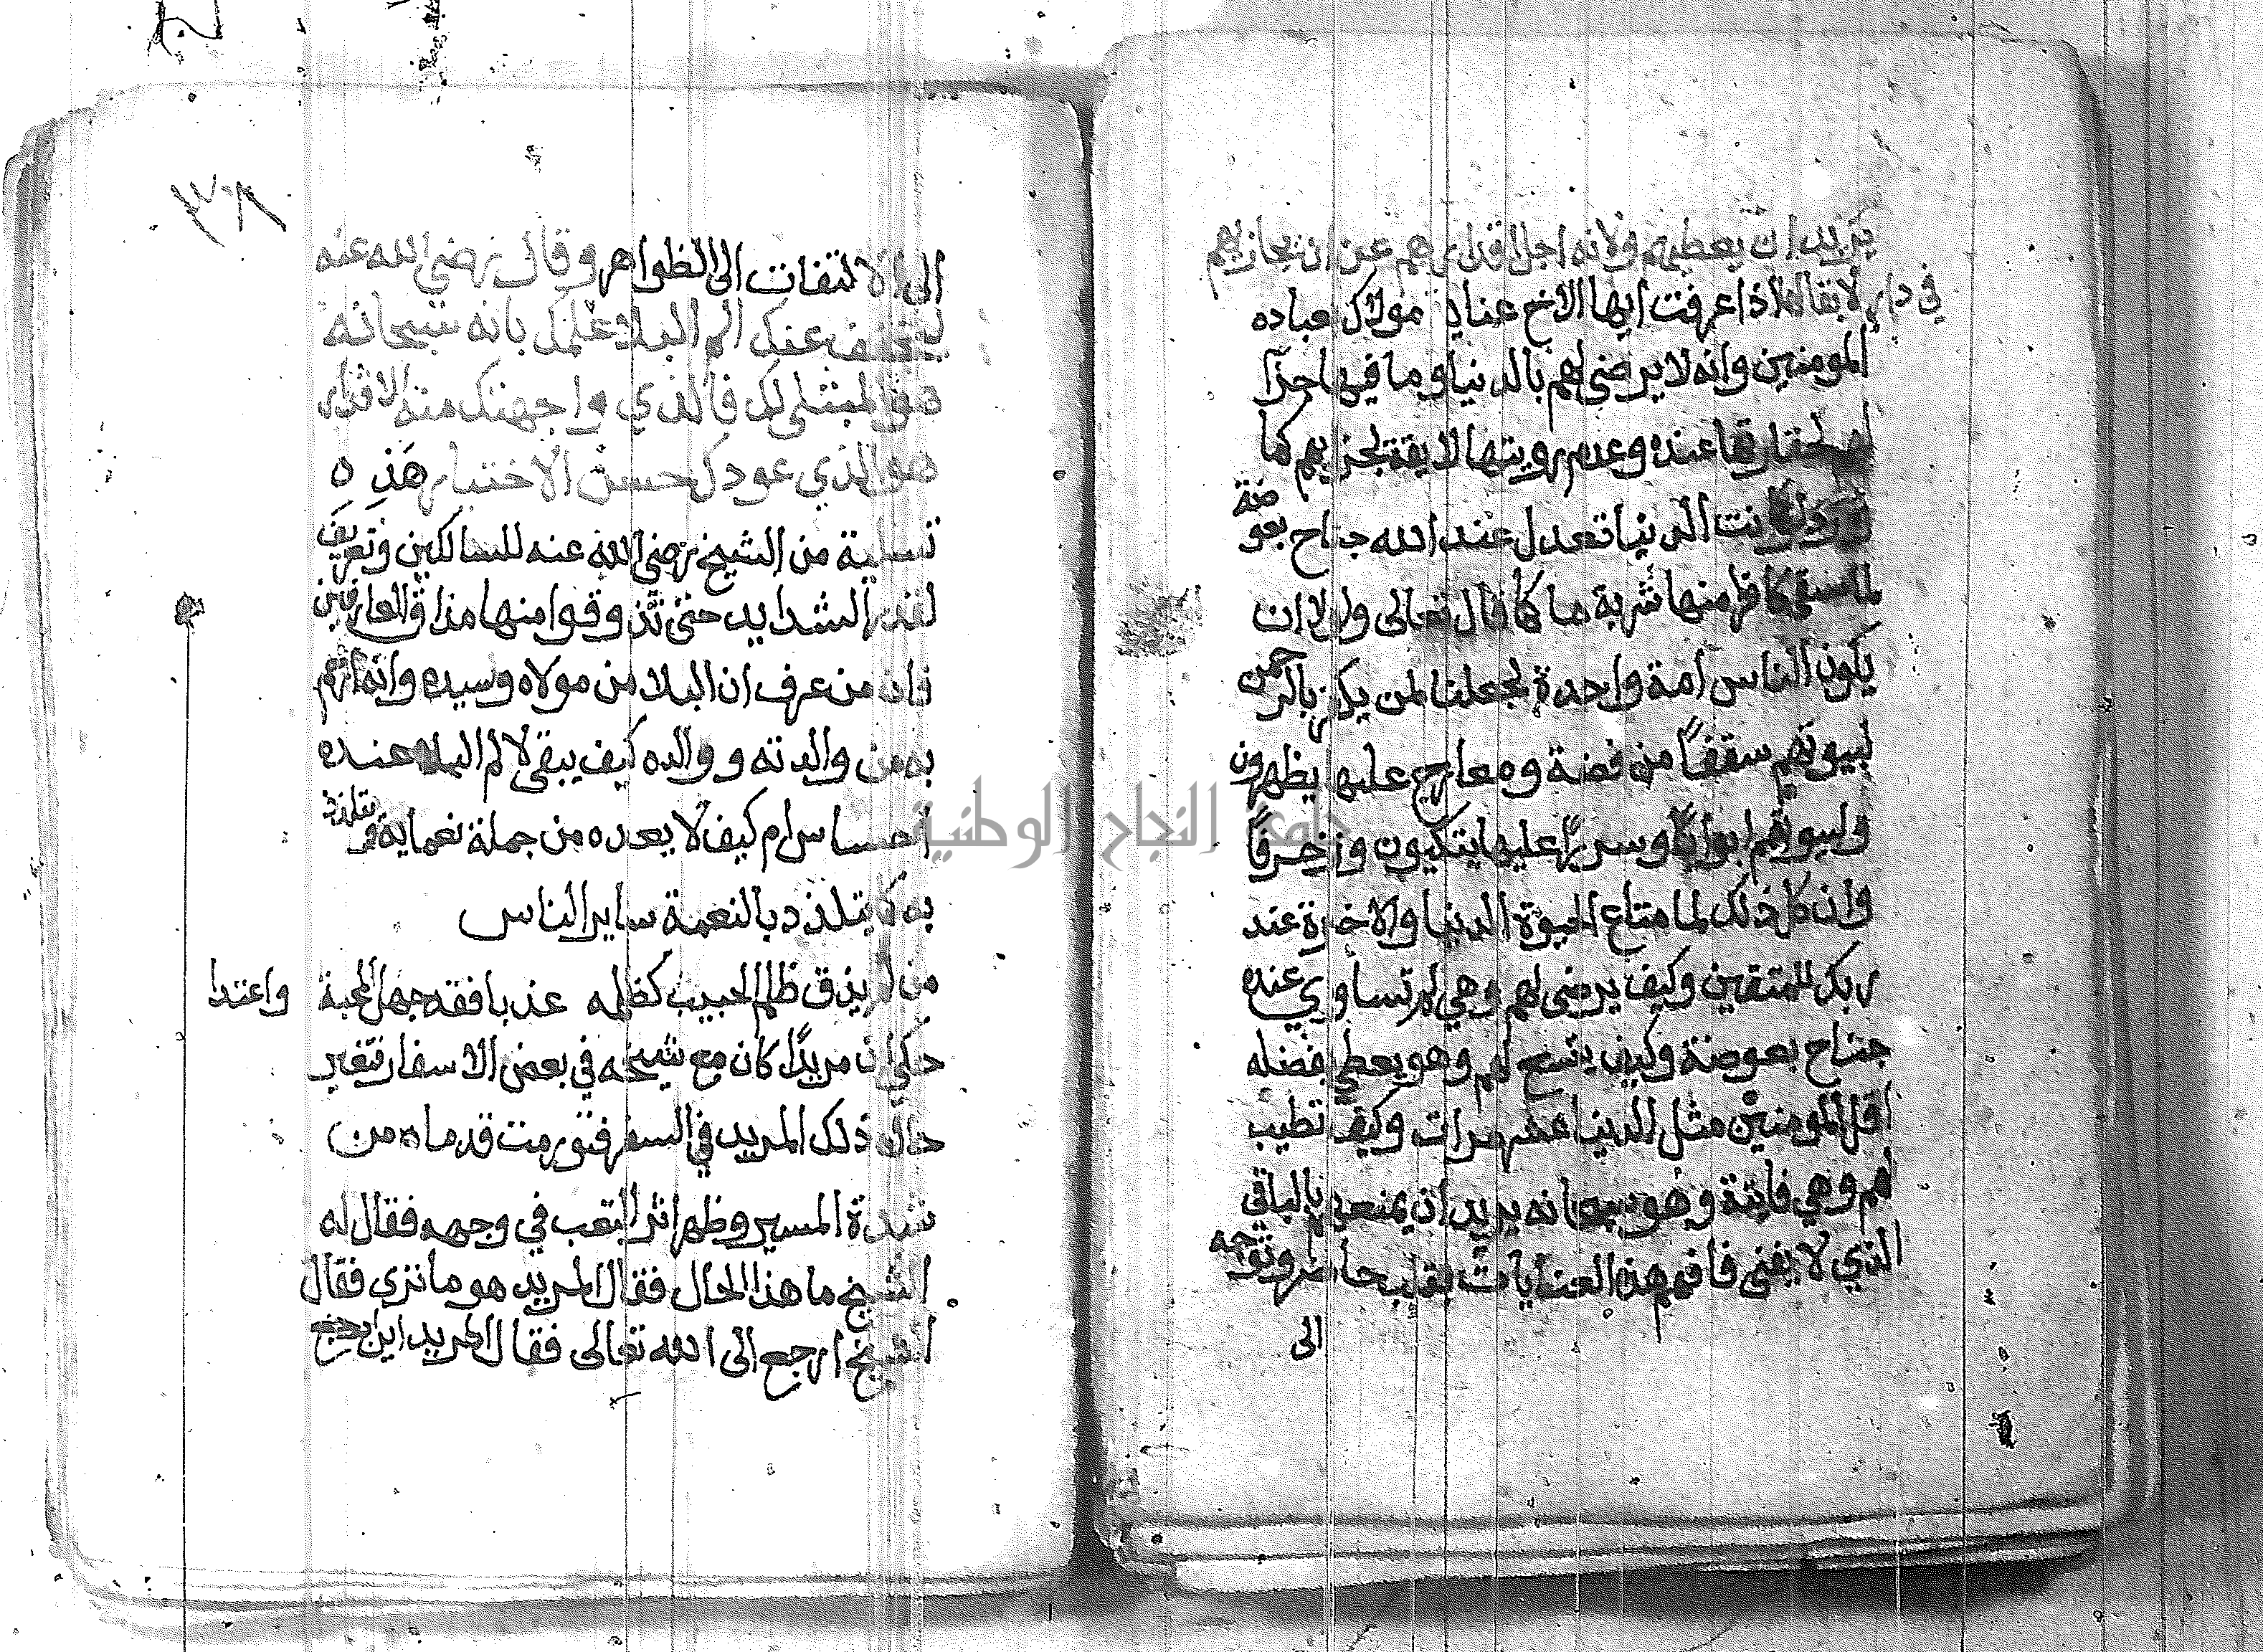 يريد ان يعطيهم ولانه اجل اقدارهم عن ان يجازيهم
في دار لا بقا لها اذا عرفت ايها الاخ عناية مولاك بعباده
المومنين وانه لا يرضى لهم بالدنيا وما فيها جزآ
لهم لحقارتها عنده وعدم رويتها لايقة لجزايهم كما
ورد لو كانت الدنيا تعدل عند الله جناح بعوضة
لما سقى كافرا منها شربة ما كما قال تعالى ولولا ان
يكون الناس امة واحدة لجعلنا لمن يكفر بالرحمن
لبيوتهم سقفاً من فضة ومعارج عليها يظهرون
ولبيوتهم ابواباً وسرراً عليها يتكيون وزخرفاً
وان كل ذلك لما متاع الحيوة الدنيا والاخرة عند
ربك للمتقين وكيف يرضى لهم وهي لم تساوي عنده
جناح بعوضة وكيف يسمح لهم وهو يعطي بفضله
اقل المومنين مثل الدنيا عشر مرات وكيف تطيب
لهم وهي فانية وهو سبحانه يريد ان يمنعهم بالباقي
الذي لا يفنى فافهم هذه العنايات بقلب حاضر وتوجه
الى
٣٧٨
الى الالتفات الى الظواهر وقال رضي الله عنه
ليخفف عنك الم البلا علمك بانه سبحانه
هو المبتلي لك فالذي واجهتك منه الاقدار
هو الذي عودك حسن الاختيار هذه
تسلية من الشيخ رضي الله عنه للسالكين وتعريف
لقدر الشدايد حتى تذوقوا منها مذاق العارفين
فان من عرف ان البلا من مولاه وسيده وانه ارحم
به من والدته ووالده كيف يبقى لالم البلا عنده
احساس ام كيف لا يعده من جملة نعمايه ويتلذذ
به كما يتلذذ بالنعمة ساير الناس
من لم يذق ظلم الحبيب كظلمه عذبا فقد جهل المحبة واعتدا
حكي ان مريدًا كان مع شيخه في بعض الاسفار فتغير
حال ذلك المريد في السفر فتورمت قدماه من
شدة المسير وظهر اثر التعب في وجهه فقال له
الشيخ ما هذا الحال فقال المريد هو ما تري فقال
الشيخ ارجع الى الله تعالى فقال المريد اين
جامعة النجاح الوطنية